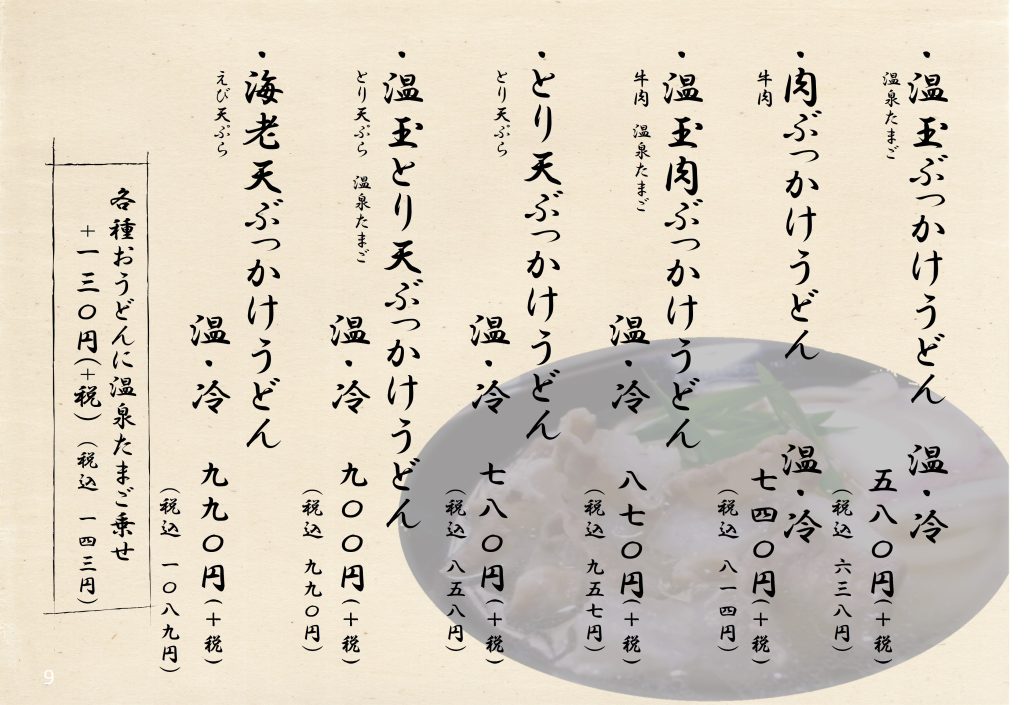 ・温玉ぶっかけうどん
温泉たまご
温・冷
五八〇円(＋税)
(税込 六三八円)
・肉ぶっかけうどん
牛肉
温・冷
七四〇円(＋税)
(税込 八一四円)
・温玉肉ぶっかけうどん
牛肉 温泉たまご
温・冷
八七〇円(＋税)
(税込 九五七円)
・とり天ぶっかけうどん
とり天ぷら
温・冷
七八〇円(＋税)
(税込 八五八円)
・温玉とり天ぶっかけうどん
とり天ぷら 温泉たまご
温・冷
九〇〇円(＋税)
(税込 九九〇円)
・海老天ぶっかけうどん
えび天ぷら
温・冷
九九〇円(＋税)
(税込 一〇八九円)
各種おうどんに温泉たまご乗せ
＋一三〇円(＋税)(税込 一四三円)
9